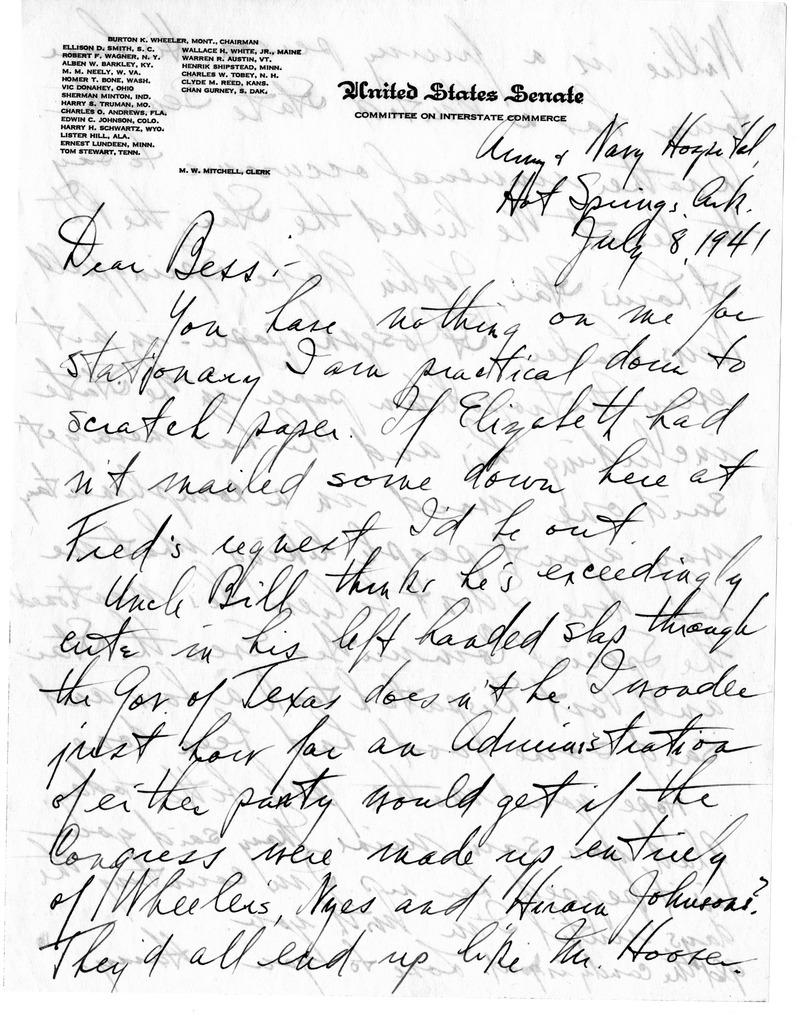 BURTON K. WHEELER, MONT., CHAIRMAN
ELLISON D. SMITH, S. C.
ROBERT F. WAGNER, N. Y.
ALBEN W. BARKLEY, KY.
M. M. NEELY, W. VA.
HOMER T. BONE, WASH.
VIC DONAHEY, OHIO
SHERMAN MINTON, IND.
HARRY S. TRUMAN, MO.
CHARLES O. ANDREWS, FLA.
EDWIN C. JOHNSON, COLO.
HARRY H. SCHWARTZ, WYO.
LISTER HILL, ALA.
ERNEST LUNDEEN, MINN.
TOM STEWART, TENN.
WALLACE H. WHITE, JR., MAINE
WARREN R. AUSTIN, VT.
HENRIK SHIPSTEAD, MINN.
CHARLES W. TOBEY, N. H.
CLYDE M. REED, KANS.
CHAN GURNEY, S. DAK.
M. W. MITCHELL, CLERK
United States Senate
COMMITTEE ON INTERSTATE COMMERCE
Army & Navy Hospital,
Hot Springs, Ark.
July 8, 1941
Dear Bess:-
You have nothing on me for
stationary I am practical down to
scratch paper. If Elizabeth had
n't mailed some down here at
Fred's request I'd be out.
Uncle Bill thinks he's exceedingly
cute in his left handed slap through
the Gov. of Texas doesn't he. I wonder
just how far an Administration
of either party would get if the
Congress were made up entirely
of Wheelers, Nyes and Hiram Johnsons?
They'd all end up like Mr. Hoover.